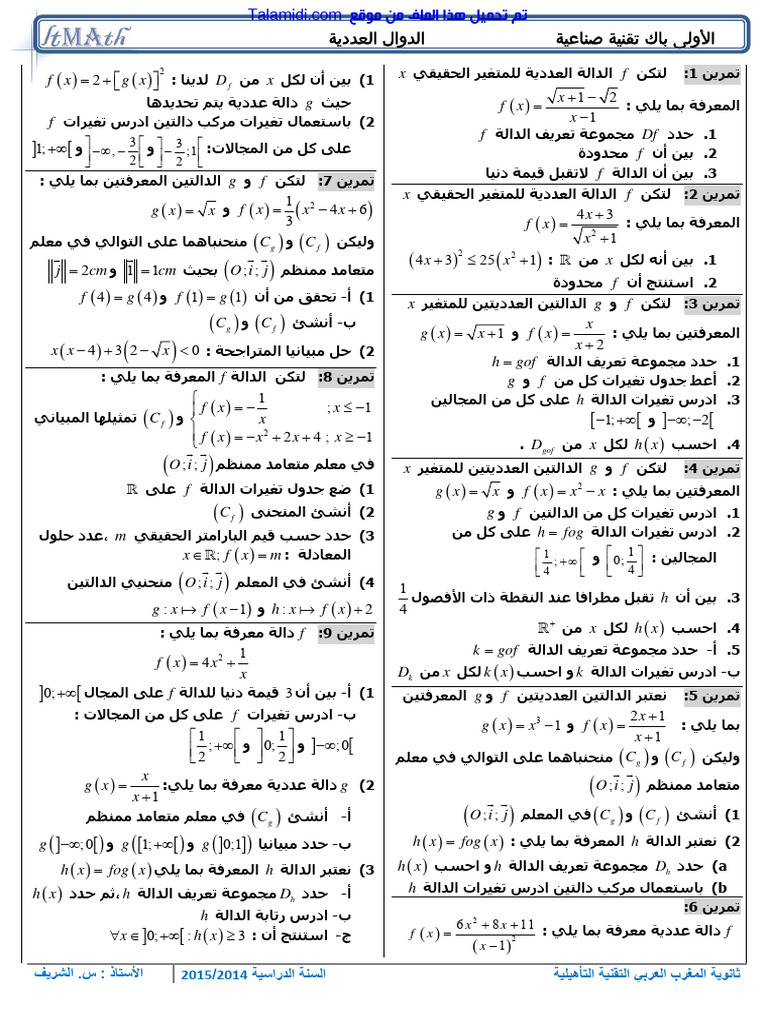 تم تحميل هذا الملف من موقع Talamidi.com
الأولى باك تقنية صناعية
الدوال العددية
ItMAth
تمرين 1: لتكن f الدالة العددية للمتغير الحقيقي x
المعرفة بما يلي : f(x) = (√(x+1) − √2)/(x−1)
1. حدد Df مجموعة تعريف الدالة f
2. بين أن f محدودة
3. بين أن الدالة f لاتقبل قيمة دنيا
تمرين 2: لتكن f الدالة العددية للمتغير الحقيقي x
المعرفة بما يلي : f(x) = (4x+3)/√(x²+1)
1. بين أنه لكل x من ℝ : (4x+3)² ≤ 25(x²+1)
2. استنتج أن f محدودة
تمرين 3: لتكن f و g الدالتين العدديتين للمتغير x
المعرفتين بما يلي : f(x) = x/(x+2) و g(x) = √(x+1)
1. حدد مجموعة تعريف الدالة h = gof
2. أعط جدول تغيرات كل من f و g
3. ادرس تغيرات الدالة h على كل من المجالين
]−∞;−2[ و [−1;+∞[
4. احسب h(x) لكل x من D_gof .
تمرين 4: لتكن f و g الدالتين العدديتين للمتغير x
المعرفتين بما يلي : f(x) = x² − x و g(x) = √x
1. ادرس تغيرات كل من الدالتين f و g
2. ادرس تغيرات الدالة h = fog على كل من
المجالين : [0;1/4] و [1/4;+∞[
3. بين أن h تقبل مطرافا عند النقطة ذات الأفصول 1/4
4. احسب h(x) لكل x من ℝ⁺
5. أ- حدد مجموعة تعريف الدالة k = gof
ب- ادرس تغيرات الدالة k و احسب k(x) لكل x من D_k
تمرين 5: نعتبر الدالتين العدديتين f و g المعرفتين
بما يلي : f(x) = (2x+1)/(x+1) و g(x) = x³ − 1
وليكن (C_f) و (C_g) منحنياهما على التوالي في معلم
متعامد ممنظم (O;i⃗;j⃗)
1) أنشئ (C_f) و (C_g) في المعلم (O;i⃗;j⃗)
2) نعتبر الدالة h المعرفة بما يلي : h(x) = fog(x)
a) حدد D_h مجموعة تعريف الدالة h و احسب h(x)
b) باستعمال مركب دالتين ادرس تغيرات الدالة h
تمرين 6:
f دالة عددية معرفة بما يلي : f(x) = (6x²+8x+11)/(x−1)²
1) بين أن لكل x من D_f لدينا : f(x) = 2+[g(x)]²
حيث g دالة عددية يتم تحديدها
2) باستعمال تغيرات مركب دالتين ادرس تغيرات f
على كل من المجالات: ]−3/2;1[ و ]−∞,−3/2[ و ]1;+∞[
تمرين 7: لتكن f و g الدالتين المعرفتين بما يلي :
f(x) = 1/3(x²−4x+6) و g(x) = √x
وليكن (C_f) و (C_g) منحنياهما على التوالي في معلم
متعامد ممنظم (O;i⃗;j⃗) بحيث ‖i⃗‖ = 1cm و ‖j⃗‖ = 2cm
1) أ- تحقق من أن f(1) = g(1) و f(4) = g(4)
ب- أنشئ (C_f) و (C_g)
2) حل مبيانيا المتراجحة : x(x−4)+3(2−√x) < 0
تمرين 8: لتكن الدالة f المعرفة بما يلي :
{ f(x) = −1/x ; x ≤ −1
f(x) = −x²+2x+4 ; x ≥ −1 و (C_f) تمثيلها المبياني
في معلم متعامد ممنظم (O;i⃗;j⃗)
1) ضع جدول تغيرات الدالة f على ℝ
2) أنشئ المنحنى (C_f)
3) حدد حسب قيم البارامتر الحقيقي m ،عدد حلول
المعادلة : x∈ℝ; f(x) = m
4) أنشئ في المعلم (O;i⃗;j⃗) منحنيي الدالتين
h : x ↦ f(x)+2 و g : x ↦ f(x−1)
تمرين 9: f دالة معرفة بما يلي :
f(x) = 4x² + 1/x
1) أ- بين أن 3 قيمة دنيا للدالة f على المجال ]0;+∞[
ب- ادرس تغيرات f على كل من المجالات :
]−∞;0[ و ]0;1/2] و [1/2;+∞[
2) g دالة عددية معرفة بما يلي: g(x) = x/(x+1)
أ- أنشئ (C_g) في معلم متعامد ممنظم
ب- حدد مبيانيا g(]0;1]) و g([1;+∞[) و g(]−∞;0[)
3) نعتبر الدالة h المعرفة بما يلي h(x) = fog(x)
أ- حدد D_h مجموعة تعريف الدالة h ،ثم حدد h(x)
ب- ادرس رتابة الدالة h
ج- استنتج أن : ∀x ∈ ]0;+∞[ : h(x) ≥ 3
ثانوية المغرب العربي التقنية التأهيلية
السنة الدراسية 2015/2014
الأستاذ : س. الشريف